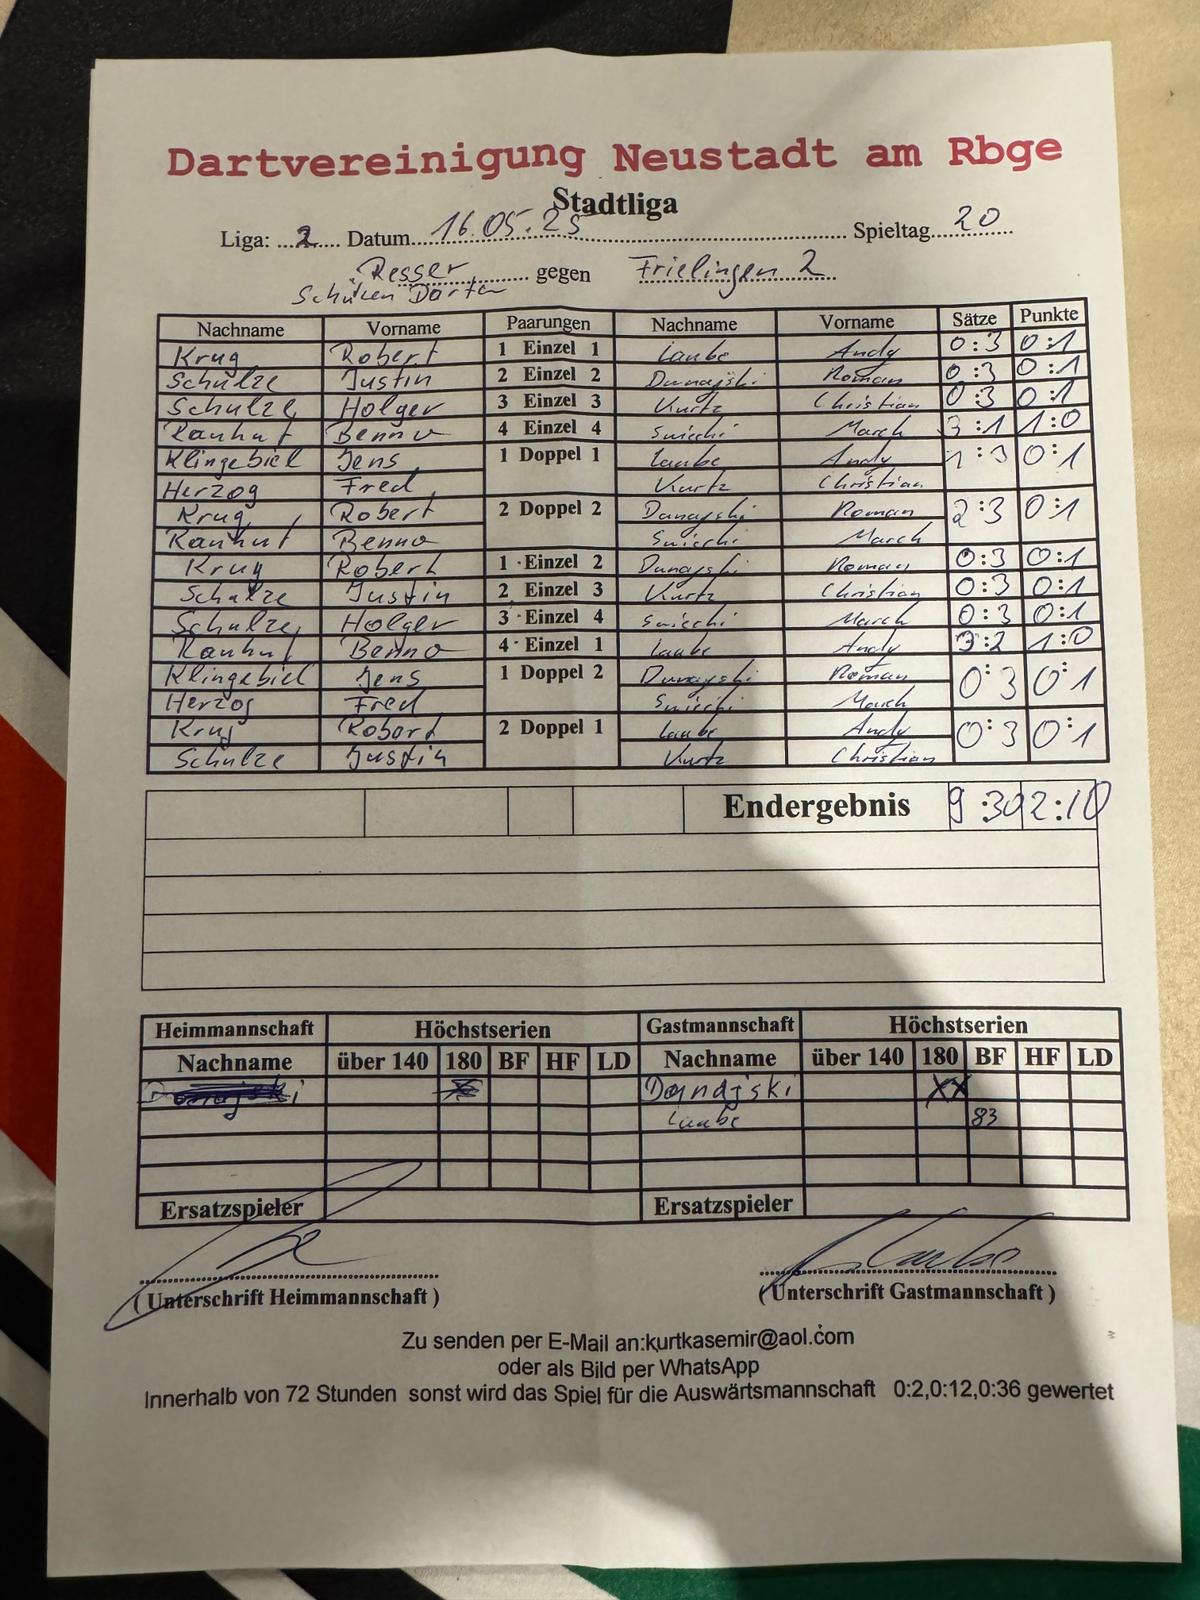 Dartvereinigung Neustadt am Rbge
Stadtliga
Liga: 2 Datum 16.05.25 Spieltag 20
Resser gegen Frielingen 2
Schützen Darter
Nachname Vorname Paarungen Nachname Vorname Sätze Punkte
Krug Robert 1 Einzel 1 Laube Andy 0:3 0:1
Schulze Justin 2 Einzel 2 Dunajski Roman 0:3 0:1
Schulze Holger 3 Einzel 3 Kurtz Christian 0:3 0:1
Rauhut Benno 4 Einzel 4 March 3:1 1:0
Klingebiel Jens 1 Doppel 1 Laube Andy 1:3 0:1
Herzog Fred Kurtz Christian
Krug Robert 2 Doppel 2 Dunajski Roman 2:3 0:1
Rauhut Benno March
Krug Robert 1 Einzel 2 Dunajski Roman 0:3 0:1
Schulze Justin 2 Einzel 3 Kurtz Christian 0:3 0:1
Schulze Holger 3 Einzel 4 March 0:3 0:1
Rauhut Benno 4 Einzel 1 Laube Andy 3:2 1:0
Klingebiel Jens 1 Doppel 2 Dunajski Roman 0:3 0:1
Herzog Fred March
Krug Robert 2 Doppel 1 Laube Andy 0:3 0:1
Schulze Justin Kurtz Christian
Endergebnis 9:30 2:10
Heimmannschaft Höchstserien Gastmannschaft Höchstserien
Nachname über 140 180 BF HF LD Nachname über 140 180 BF HF LD
Danajski XX
Laube 83
Ersatzspieler Ersatzspieler
(Unterschrift Heimmannschaft) (Unterschrift Gastmannschaft)
Zu senden per E-Mail an:kurtkasemir@aol.com
oder als Bild per WhatsApp
Innerhalb von 72 Stunden sonst wird das Spiel für die Auswärtsmannschaft 0:2,0:12,0:36 gewertet